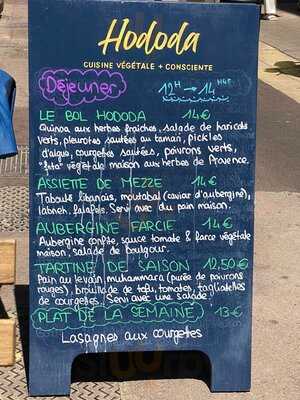 Hododa
CUISINE VÉGÉTALE + CONSCIENTE
Déjeuner
12H → 14H45
LE BOL HODODA 14€
Quinoa aux herbes fraîches, salade de haricots
verts, pleurotes sautées au tamari, pickles
d'aigre, courgettes sautées, poivrons verts,
"feta" végétale maison aux herbes de Provence.
ASSIETTE DE MEZZE 14€
Taboulé libanais, moutabal (caviar d'aubergine),
labneh, falafels. Servi avec du pain maison.
AUBERGINE FARCIE 14€
Aubergine confite, sauce tomate & farce végétale
maison, salade de boulgour.
TARTINE DE SAISON 12,50€
Pain au levain, muhammara (purée de poivrons
rouges), brouillade de tofu, tomates, tagliatelles
de courgettes. Servi avec une salade.
PLAT DE LA SEMAINE 13€
Lasagnes aux courgettes